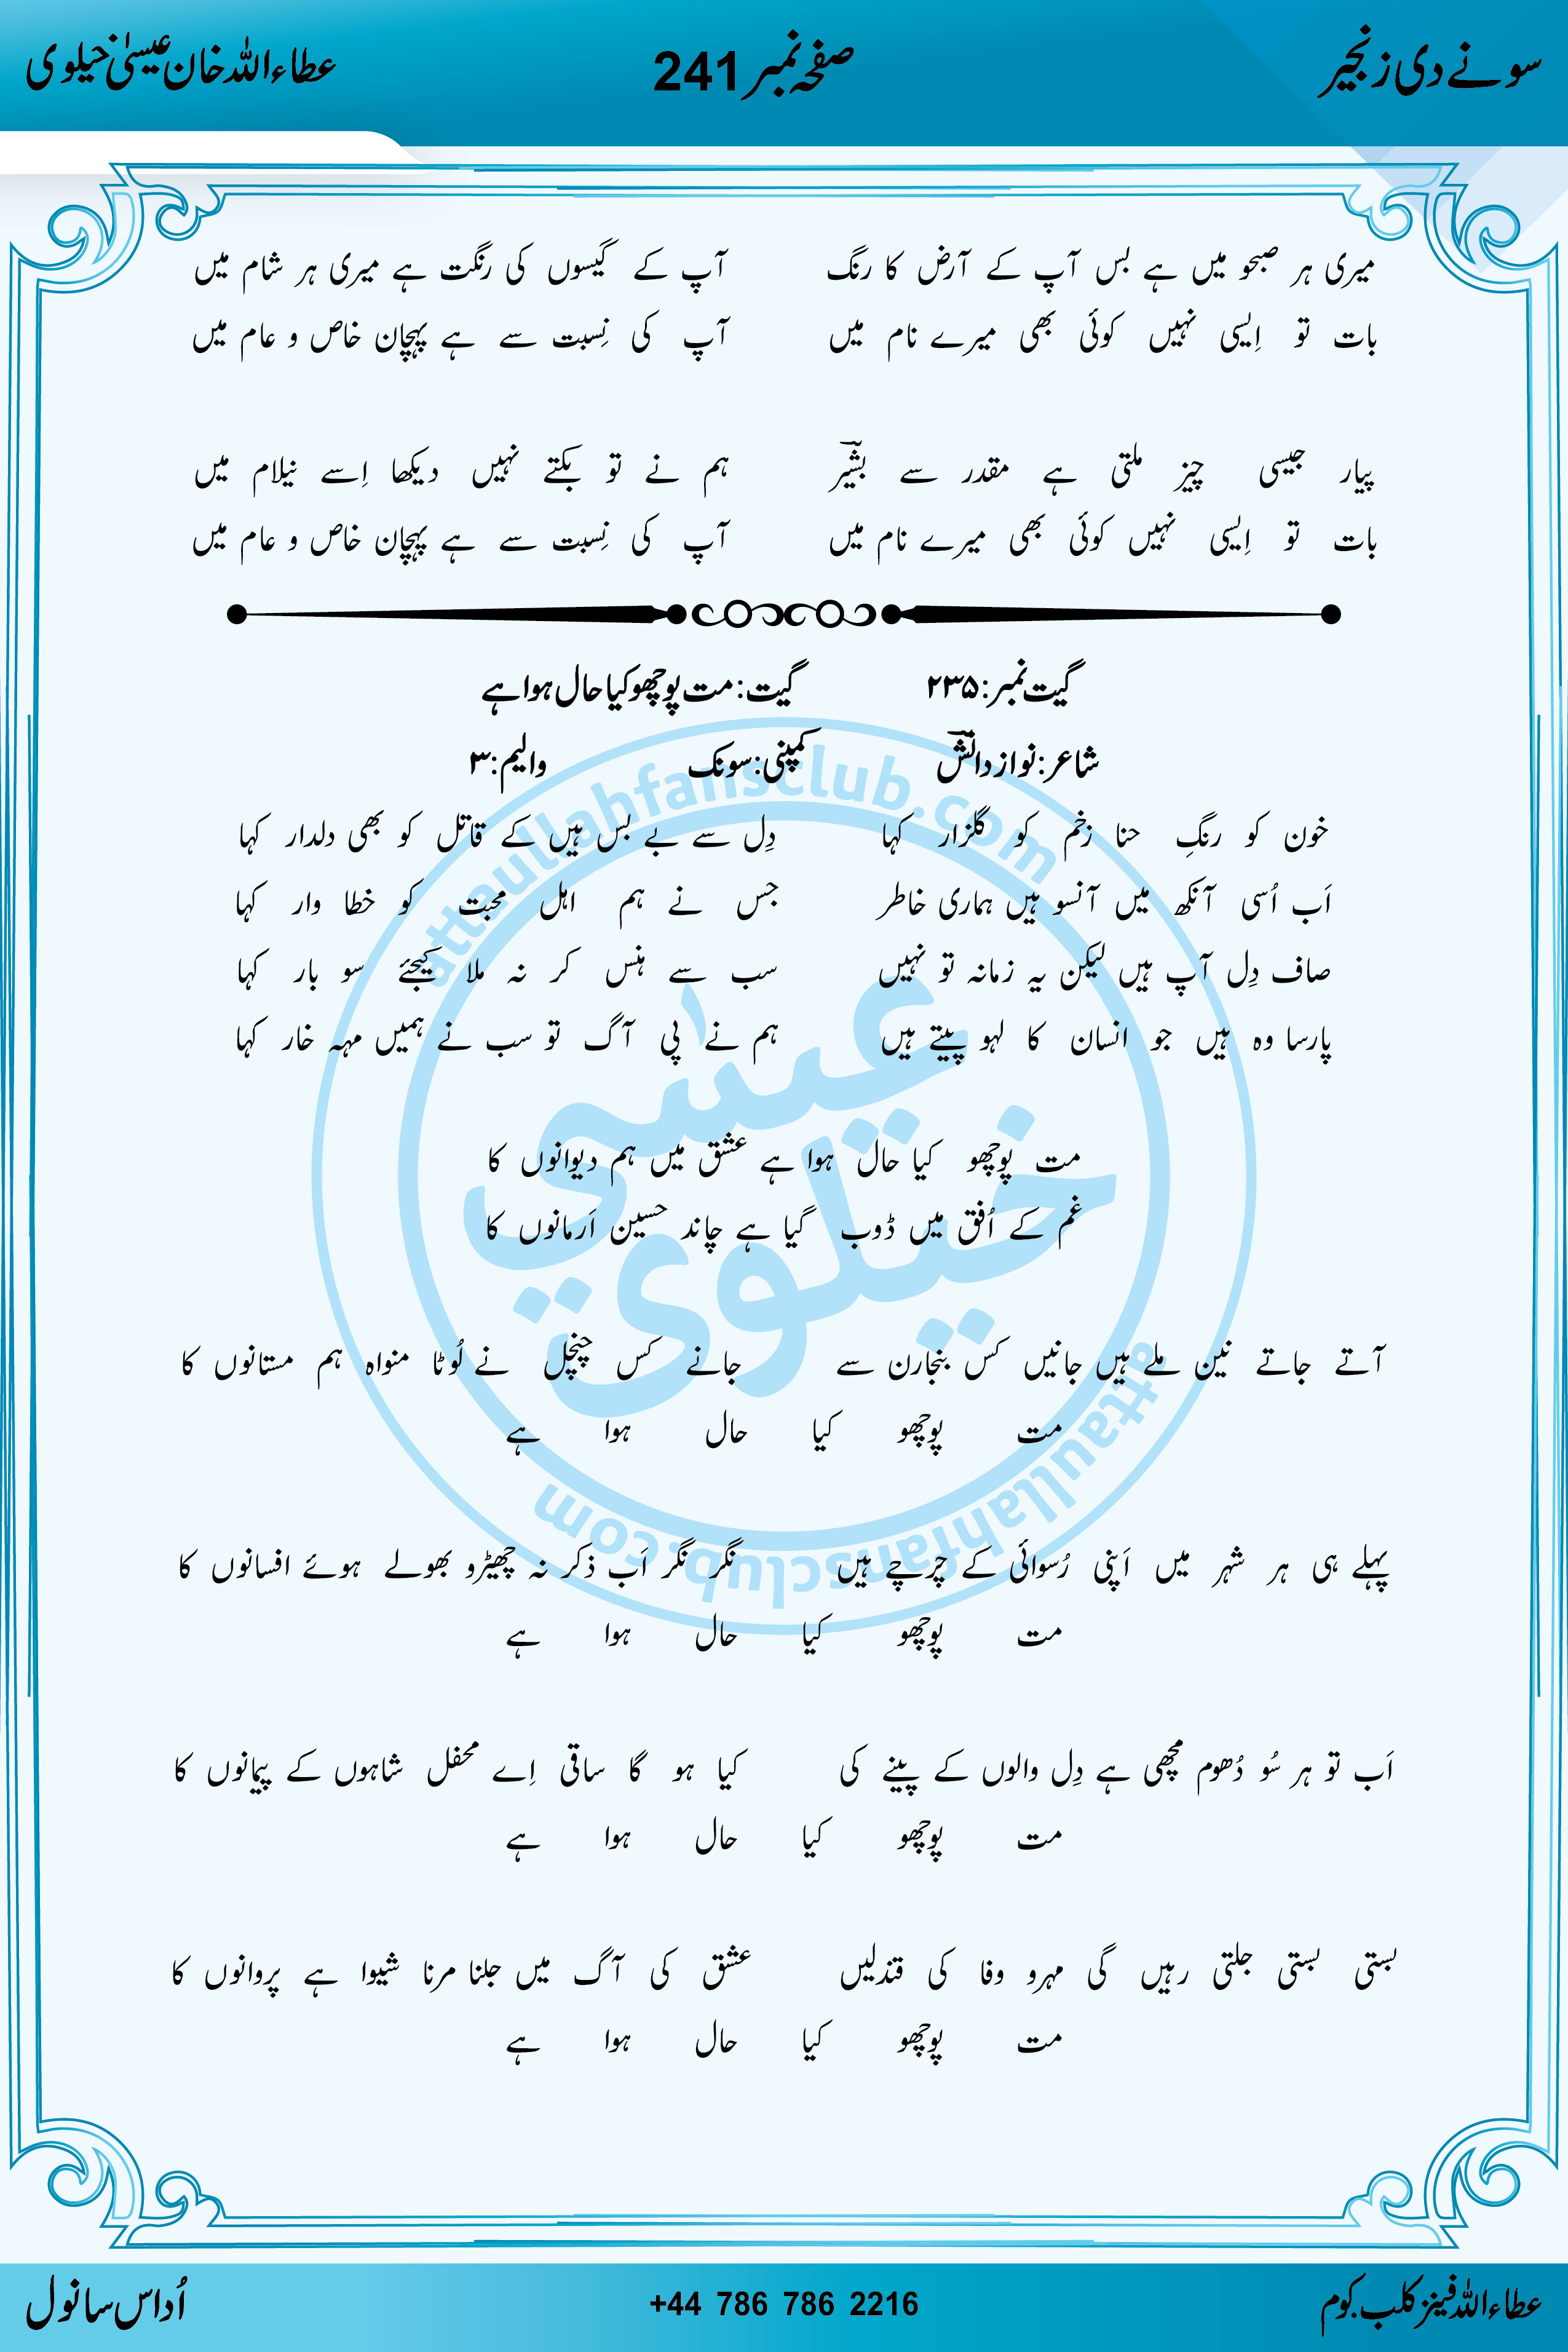 سونے دی زنجیر صفحہ نمبر 241 عطاءاللہ خان عیسیٰ خیلوی
میری ہر صبحو میں ہے بس آپ کے آرض کا رنگ آپ کے گیسوں کی رنگت ہے میری ہر شام میں
بات تو اِیسی نہیں کوئی بھی میرے نام میں آپ کی نِسبت سے ہے پہچان خاص و عام میں
پیار جیسی چیز ملتی ہے مقدر سے بشیرؔ ہم نے تو بکتے نہیں دیکھا اِسے نیلام میں
بات تو اِیسی نہیں کوئی بھی میرے نام میں آپ کی نِسبت سے ہے پہچان خاص و عام میں
گیت نمبر: ۲۳۵ گیت: مت پوچھو کیا حال ہوا ہے
شاعر: نواز دانشؔ کمپنی: سونک والیم: ۳
خون کو رنگِ حنا زخم کو گلزار کہا دِل سے بے بس ہیں کے قاتل کو بھی دلدار کہا
اَب اُسی آنکھ میں آنسو ہیں ہماری خاطر جس نے ہم اہل محبت کو خطا وار کہا
صاف دِل آپ ہیں لیکن یہ زمانہ تو نہیں سب سے ہنس کر نہ ملا کیجئے سو بار کہا
پارسا وہ ہیں جو انسان کا لہو پیتے ہیں ہم نے پی آگ تو سب نے ہمیں مہہ خار کہا
مت پوچھو کیا حال ہوا ہے عشق میں ہم دیوانوں کا
غم کے اُفق میں ڈوب گیا ہے چاند حسین اَرمانوں کا
آتے جاتے نین ملے ہیں جانیں کس بنجارن سے جانے کس چنچل نے لُوٹا منواہ ہم مستانوں کا
مت پوچھو کیا حال ہوا ہے
پہلے ہی ہر شہر میں اَپنی رُسوائی کے چرچے ہیں نگر نگر اَب ذکر نہ چھیڑو بھولے ہوئے افسانوں کا
مت پوچھو کیا حال ہوا ہے
اَب تو ہر سُو دُھوم مچھی ہے دِل والوں کے پینے کی کیا ہو گا ساقی اِے محفل شاہوں کے پیمانوں کا
مت پوچھو کیا حال ہوا ہے
بستی بستی جلتی رہیں گی مہرو وفا کی قندلیں عشق کی آگ میں جلنا مرنا شیوا ہے پروانوں کا
مت پوچھو کیا حال ہوا ہے
attaullahfansclub.com
عیسٰی
خیلوی
attaullahfansclub.com
عطاءاللہ فینز کلب.کوم +44 786 786 2216 اُداس سانول